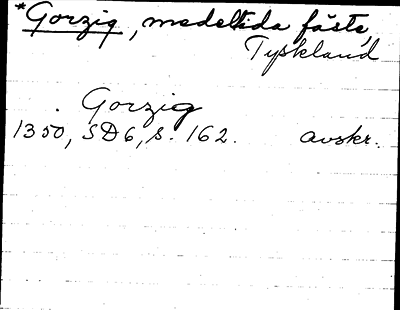 *Gorzig, medeltida fäste,
Tyskland
. Gorzig
1350, SD6, s. 162. avskr.